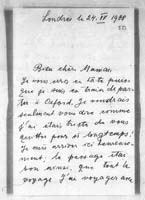 Londres le 24. IV 1938
Bien chère Maman,
Je vous écris en hâte puis-
que je suis en train de par-
tir à Oxford. Je voudrais
seulement vous dire comme
j'étais triste de vous
quitter pour si longtemps!
Je suis arrivé ici heureuse-
ment, le passage était
bon aussi, que tout le
voyage. J'ai voyagé avec